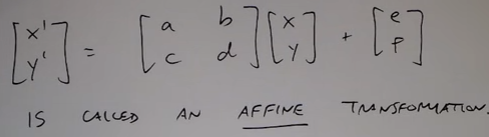 [x' y'] = [a b c d] [x y] + [e f]
IS CALLED AN AFFINE TRANSFORMATION.